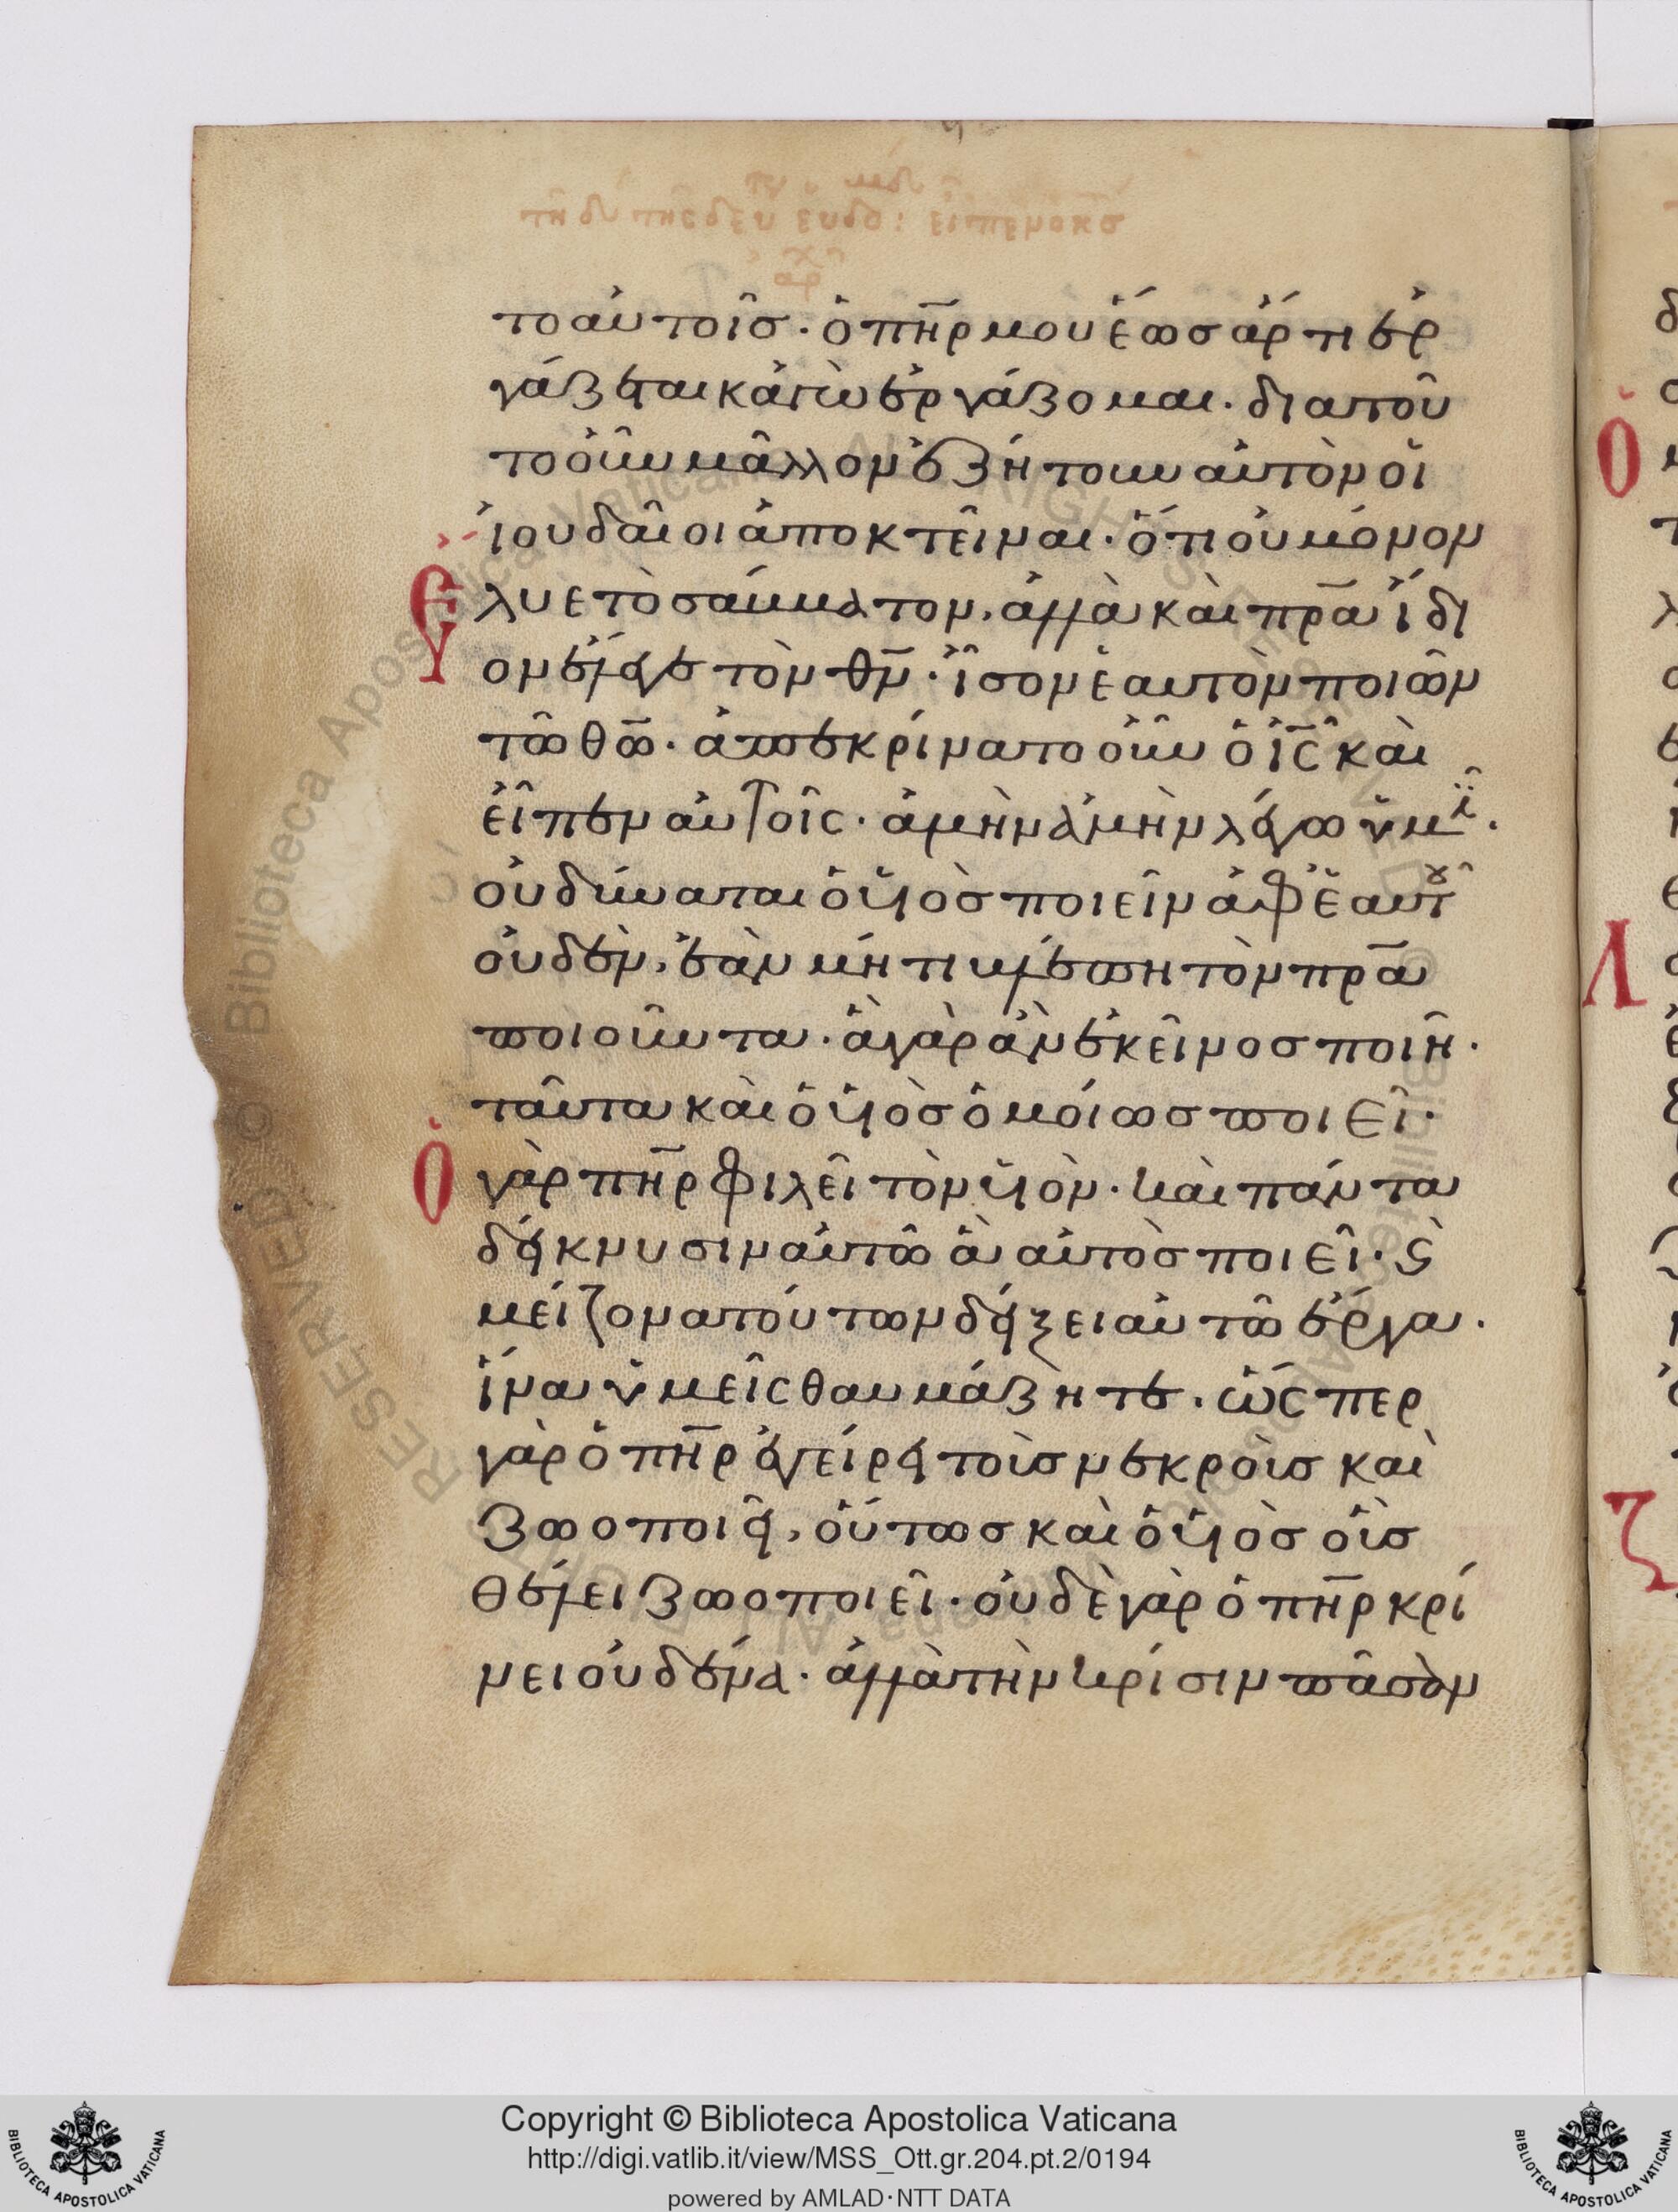 το αὐτοῖσ· ὁ πη̅ρ μου ἕωσ ἄρτι ἐρ
γάζεται κἀγὼ ἐργάζομαι· διατοῦ
το οὖν μᾶλλον ἐζήτουν αὐτὸν οἱ
ἰουδαῖοι ἀποκτεῖναι· ὅτι οὐ μόνον
ἔλυε τὸ σάββατον, ἀλλὰ καὶ πρ̅α ἴδι
ον ἔλεγε τὸν θν̅· ἴσον ἑαυτὸν ποιῶν
τῶ θω̅· ἀπεκρίνατο οὖν ὁ ι̅ς̅ καὶ
εἶπεν αὐτοῖς· ἀμὴν ἀμὴν λέγω ὑμῖ·
οὐ δύναται ὁ υἱὸσ ποιεῖν ἀφ ἑαυτοῦ
οὐδὲν, ἐὰν μή τι βλέπη τὸν πρ̅α
ποιοῦντα· ἃ γὰρ ἂν ἐκεῖνοσ ποιῆ·
ταῦτα καὶ ὁ υἱὸσ ὁμοίωσ ποιεῖ·
Ὁ γὰρ πη̅ρ φιλεῖ τὸν υἱὸν· καὶ πάντα
δείκνυσιν αὐτῶ ἃ αὐτὸσ ποιεῖ· ϗ
μείζονα τούτων δείξει αὐτῶ ἔργα·
ἵνα ὑμεῖς θαυμάζητε· ὥςπερ
γὰρ ὁ πη̅ρ ἐγείρει τοὺσ νεκροὺσ καὶ
ζωοποιεῖ, οὕτωσ καὶ ὁ υἱὸσ οὓσ
θέλει ζωοποιεῖ· οὐδὲ γὰρ ὁ πη̅ρ κρί
νει οὐδένα· ἀλλὰ τὴν κρίσιν πᾶσαν
Copyright © Biblioteca Apostolica Vaticana
http://digi.vatlib.it/view/MSS_Ott.gr.204.pt.2/0194
powered by AMLAD·NTT DATA